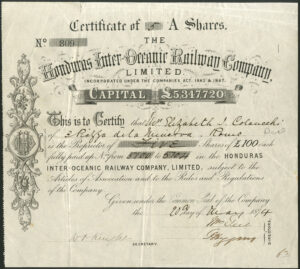 Certificate of A Shares.
No 809
THE
Honduras Inter-Oceanic Railway Company,
LIMITED.
INCORPORATED UNDER THE COMPANIES ACT, 1862 & 1867.
CAPITAL $5347720
This is to Certify that Mrs Elizabeth J. Colanechi
of 3 Piazza della Minerva, Rome
is the Proprietor of FIVE Shares of £100 each
fully paid up, Nos from 5700 to 5704 in the HONDURAS
INTER-OCEANIC RAILWAY COMPANY, LIMITED, subject to the
Articles of Association and to the Rules and Regulations
of the Company.
Given under the Common Seal of the Company
the 20 Day of May 1874
SECRETARY.
DIRECTORS